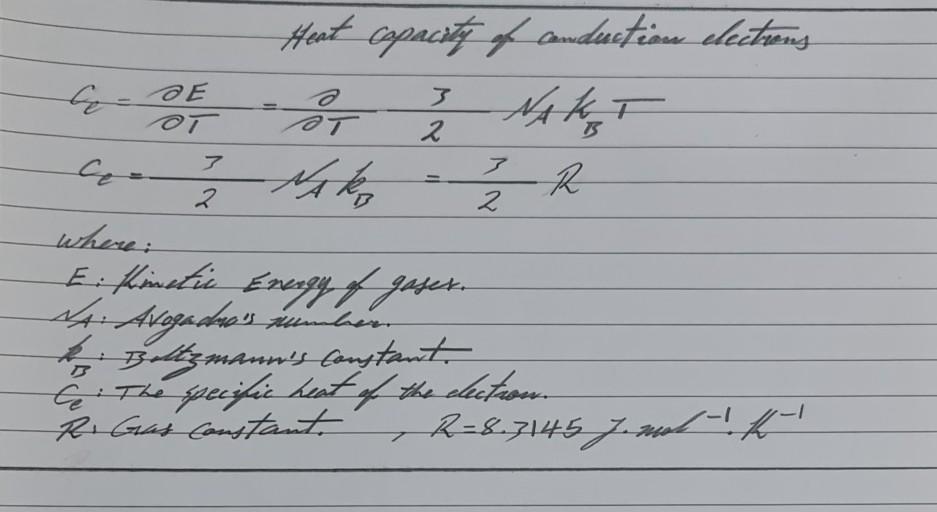 Heat capacity of conduction electrons
Ce = ∂E/∂T = ∂/∂T 3/2 NA kB T
Ce = 3/2 NA kB = 3/2 R
where:
E: Kinetic Energy of gases.
NA: Avogadro's number.
kB: Boltzmann's constant.
Ce: The specific heat of the electron.
R: Gas constant. , R=8.3145 J.mol⁻¹.K⁻¹